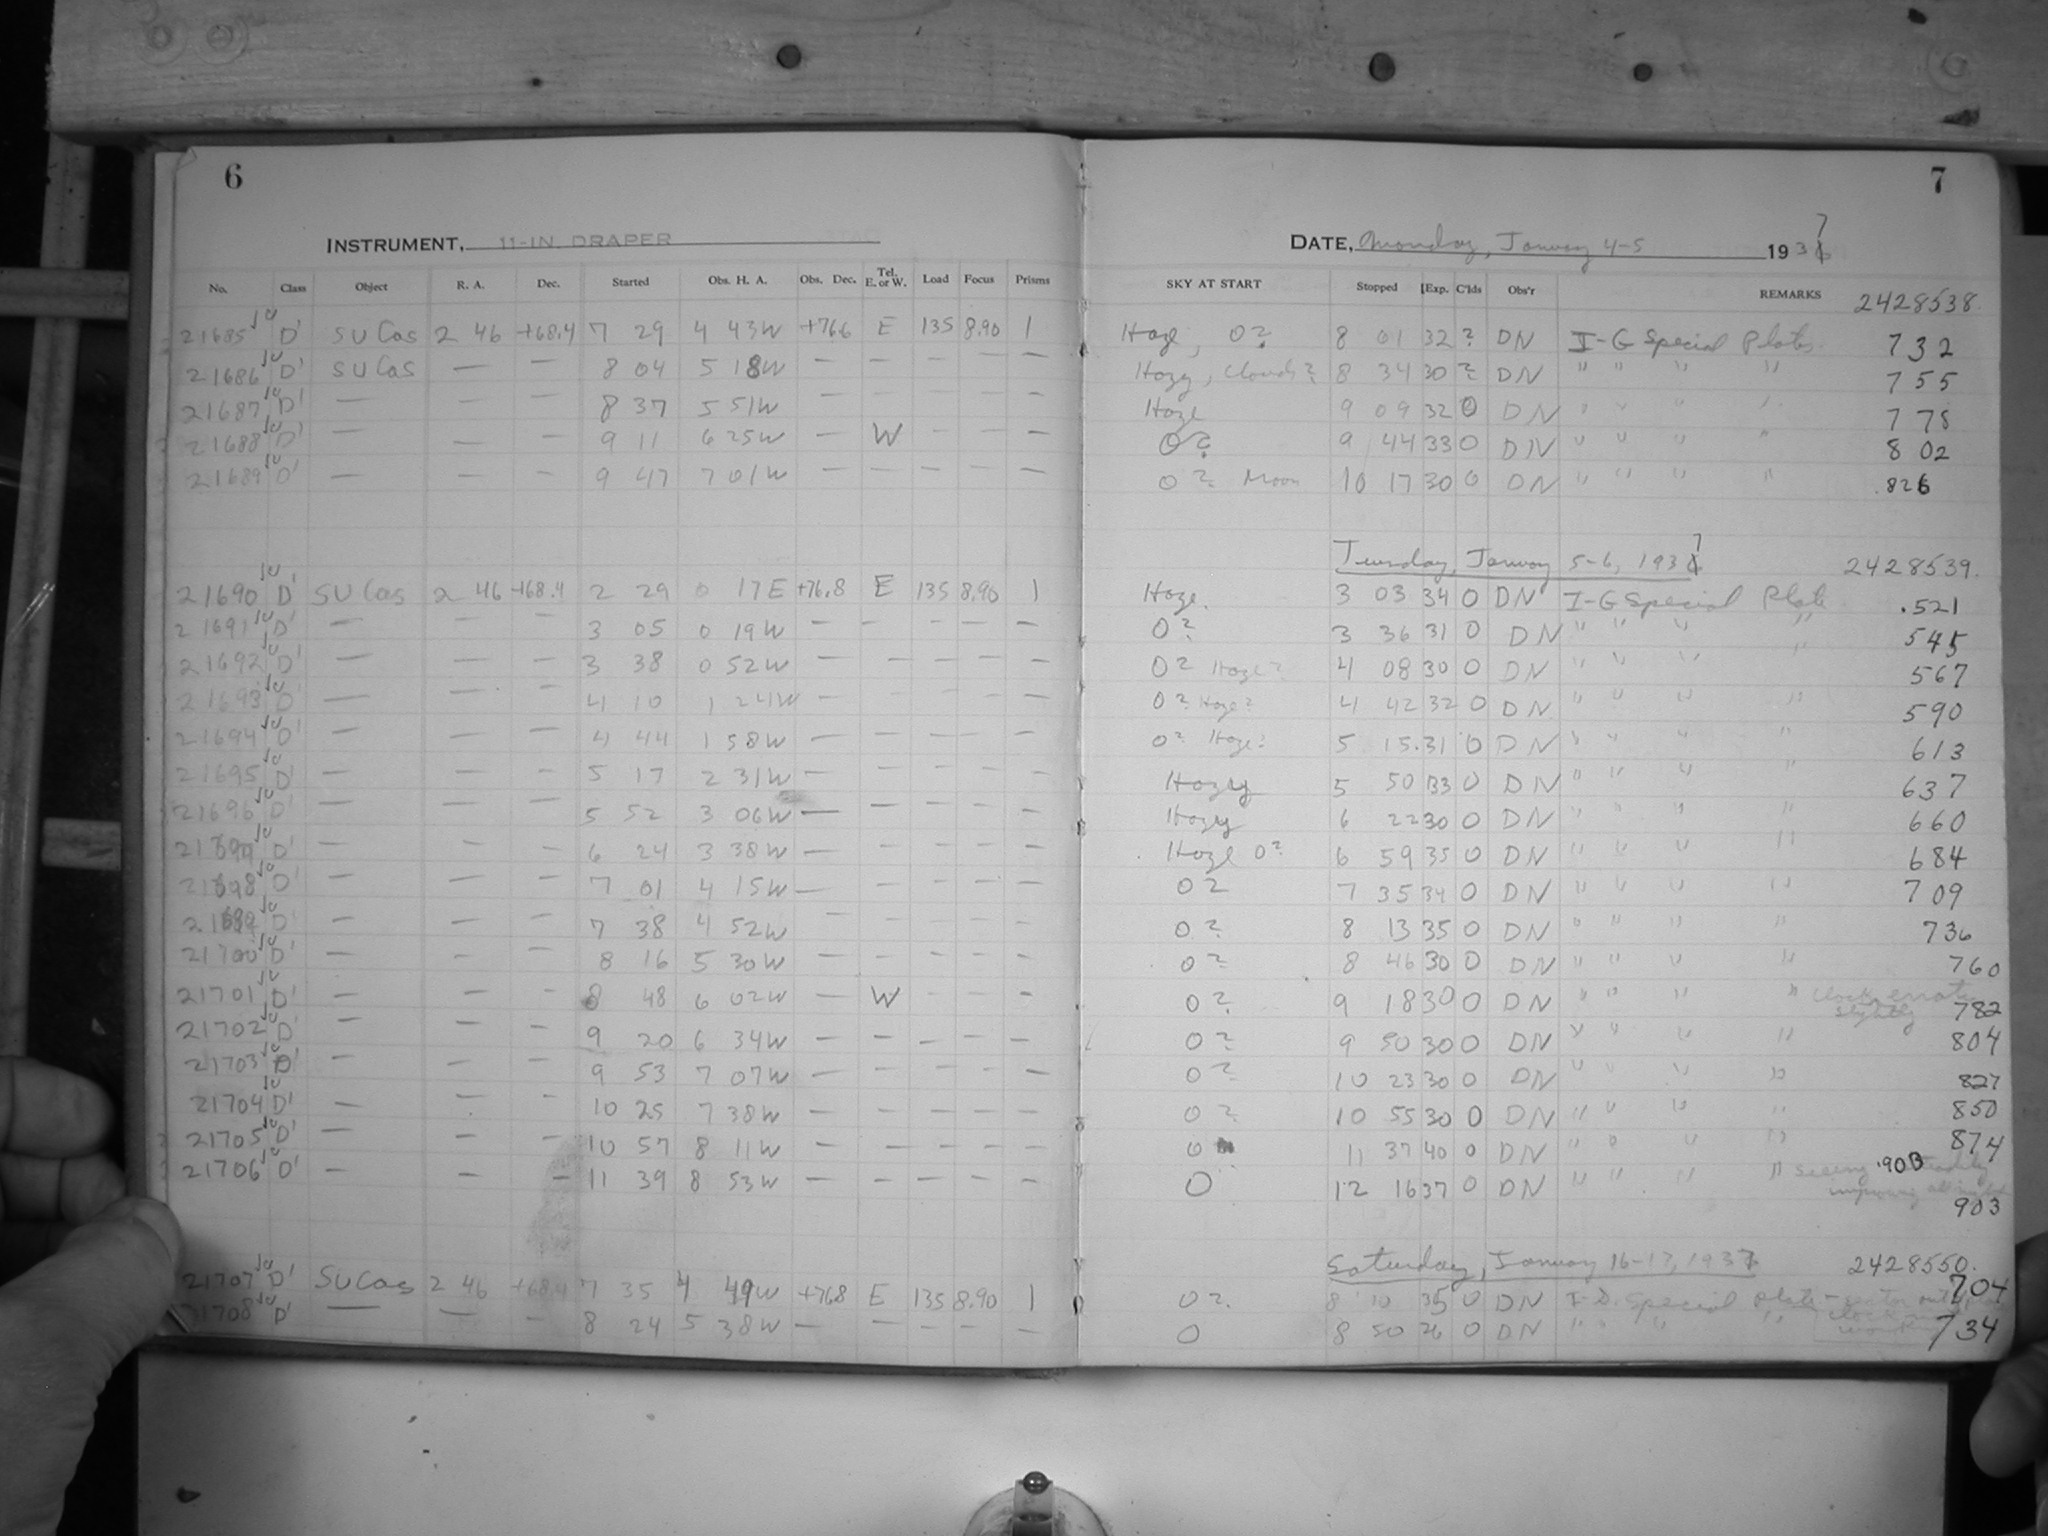 6
INSTRUMENT, 11-IN. DRAPER
No. Class Object R. A. Dec. Started Obs. H. A. Obs. Dec. Tel. E. or W. Load Focus Prisms
21685 D' SU Cas 2 46 +68.4 7 29 4 43W +76.6 E 135 8.90 1
21686 D' SU Cas — — 8 04 5 18W — — — — —
21687 D' — — — 8 37 5 51W — — — — —
21688 D' — — — 9 11 6 25W — W — — —
21689 D' — — — 9 47 7 01W — — — — —
21690 D' SU Cas 2 46 +68.4 2 29 0 17E +76.8 E 135 8.90 1
21691 D' — — — 3 05 0 19W — — — — —
21692 D' — — — 3 38 0 52W — — — — —
21693 D' — — — 4 10 1 24W — — — — —
21694 D' — — — 4 44 1 58W — — — — —
21695 D' — — — 5 17 2 31W — — — — —
21696 D' — — — 5 52 3 06W — — — — —
D' — — — 6 24 3 38W — — — — —
21698 D' — — — 7 01 4 15W — — — — —
21699 D' — — — 7 38 4 52W — — — — —
21700 D' — — — 8 16 5 30W — — — — —
21701 D' — — — 8 48 6 02W — W — — —
21702 D' — — — 9 20 6 34W — — — — —
21703 D' — — — 9 53 7 07W — — — — —
21704 D' — — — 10 25 7 38W — — — — —
21705 D' — — — 10 57 8 11W — — — — —
21706 D' — — — 11 39 8 53W — — — — —
21707 D' SU Cas 2 46 +68.4 7 35 4 49W +76.8 E 135 8.90 1
21708 D' — — — 8 24 5 38W — — — — —
7
DATE, Monday, January 4-5 1937
SKY AT START Stopped Exp. C'lds Obs'r REMARKS 2428538.
Haze, 0? 8 01 32 ? DN I-G Special Plates 732
Hazy, Clouds? 8 34 30 ? DN " " " " 755
Haze 9 09 32 0 DN " " " " 778
0? 9 44 33 0 DN " " " " 802
0? Moon 10 17 30 0 DN " " " " .826
Tuesday, January 5-6, 1937 2428539.
Haze. 3 03 34 0 DN I-G Special Plate .521
0? 3 36 31 0 DN " " " " 545
0? Haze? 4 08 30 0 DN " " " " 567
0? Haze? 4 42 32 0 DN " " " " 590
0? Haze? 5 15 31 0 DN " " " " 613
Hazy 5 50 33 0 DN " " " " 637
Hazy 6 22 30 0 DN " " " " 660
Haze 0? 6 59 35 0 DN " " " " 684
0? 7 35 34 0 DN " " " " 709
0? 8 13 35 0 DN " " " " 736
0? 8 46 30 0 DN " " " " 760
0? 9 18 30 0 DN " " " " Clock erratic slightly 782
0? 9 50 30 0 DN " " " " 804
0? 10 23 30 0 DN " " " " 827
0? 10 55 30 0 DN " " " " 850
0 11 37 40 0 DN " " " " 874
0 12 16 37 0 DN " " " " seeing steadily improving all night .903
903
Saturday, January 16-17, 1937 2428550.
0? 8 10 35 0 DN Special Plate 704
0 8 50 26 0 DN " " " " 734